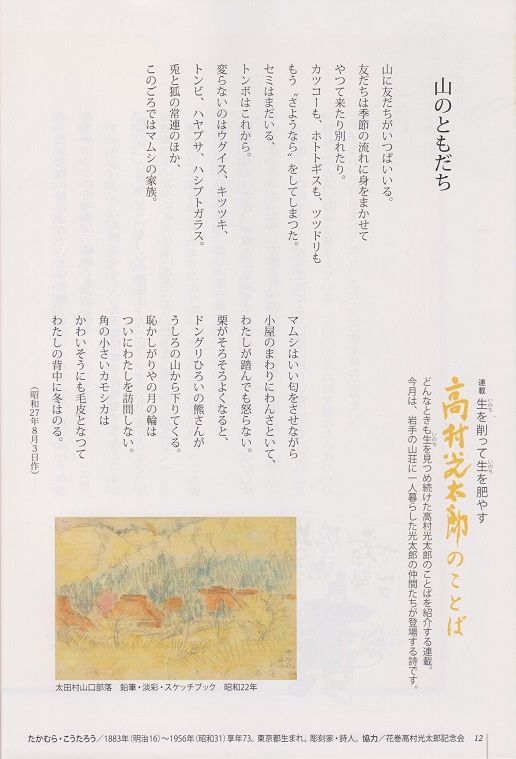 連載 生を削って生を肥やす
いのち
いのち
高村光太郎のことば
どんなときも生を見つめ続けた高村光太郎のことばを紹介する連載。
いのち
今月は、岩手の山荘に一人暮らした光太郎の仲間たちが登場する詩です。
山のともだち
山に友だちがいつぱいいる。
友だちは季節の流れに身をまかせて
やつて来たり別れたり。
カツコーも、ホトトギスも、ツツドリも
もう〝さようなら〟をしてしまつた。
セミはまだいる、
トンボはこれから。
変らないのはウグイス、キツツキ、
トンビ、ハヤブサ、ハシブトガラス。
兎と狐の常連のほか、
このごろではマムシの家族。
マムシはいい匂をさせながら
小屋のまわりにわんさといて、
わたしが踏んでも怒らない。
栗がそろそろよくなると、
ドングリひろいの熊さんが
うしろの山から下りてくる。
恥かしがりやの月の輪は
ついにわたしを訪問しない。
角の小さいカモシカは
かわいそうにも毛皮となつて
わたしの背中に冬はのる。
（昭和27年8月3日作）
太田村山口部落　鉛筆・淡彩・スケッチブック　昭和22年
たかむら・こうたろう／1883年（明治16）〜1956年（昭和31）享年73。東京都生まれ。彫刻家・詩人。協力／花巻高村光太郎記念会　12